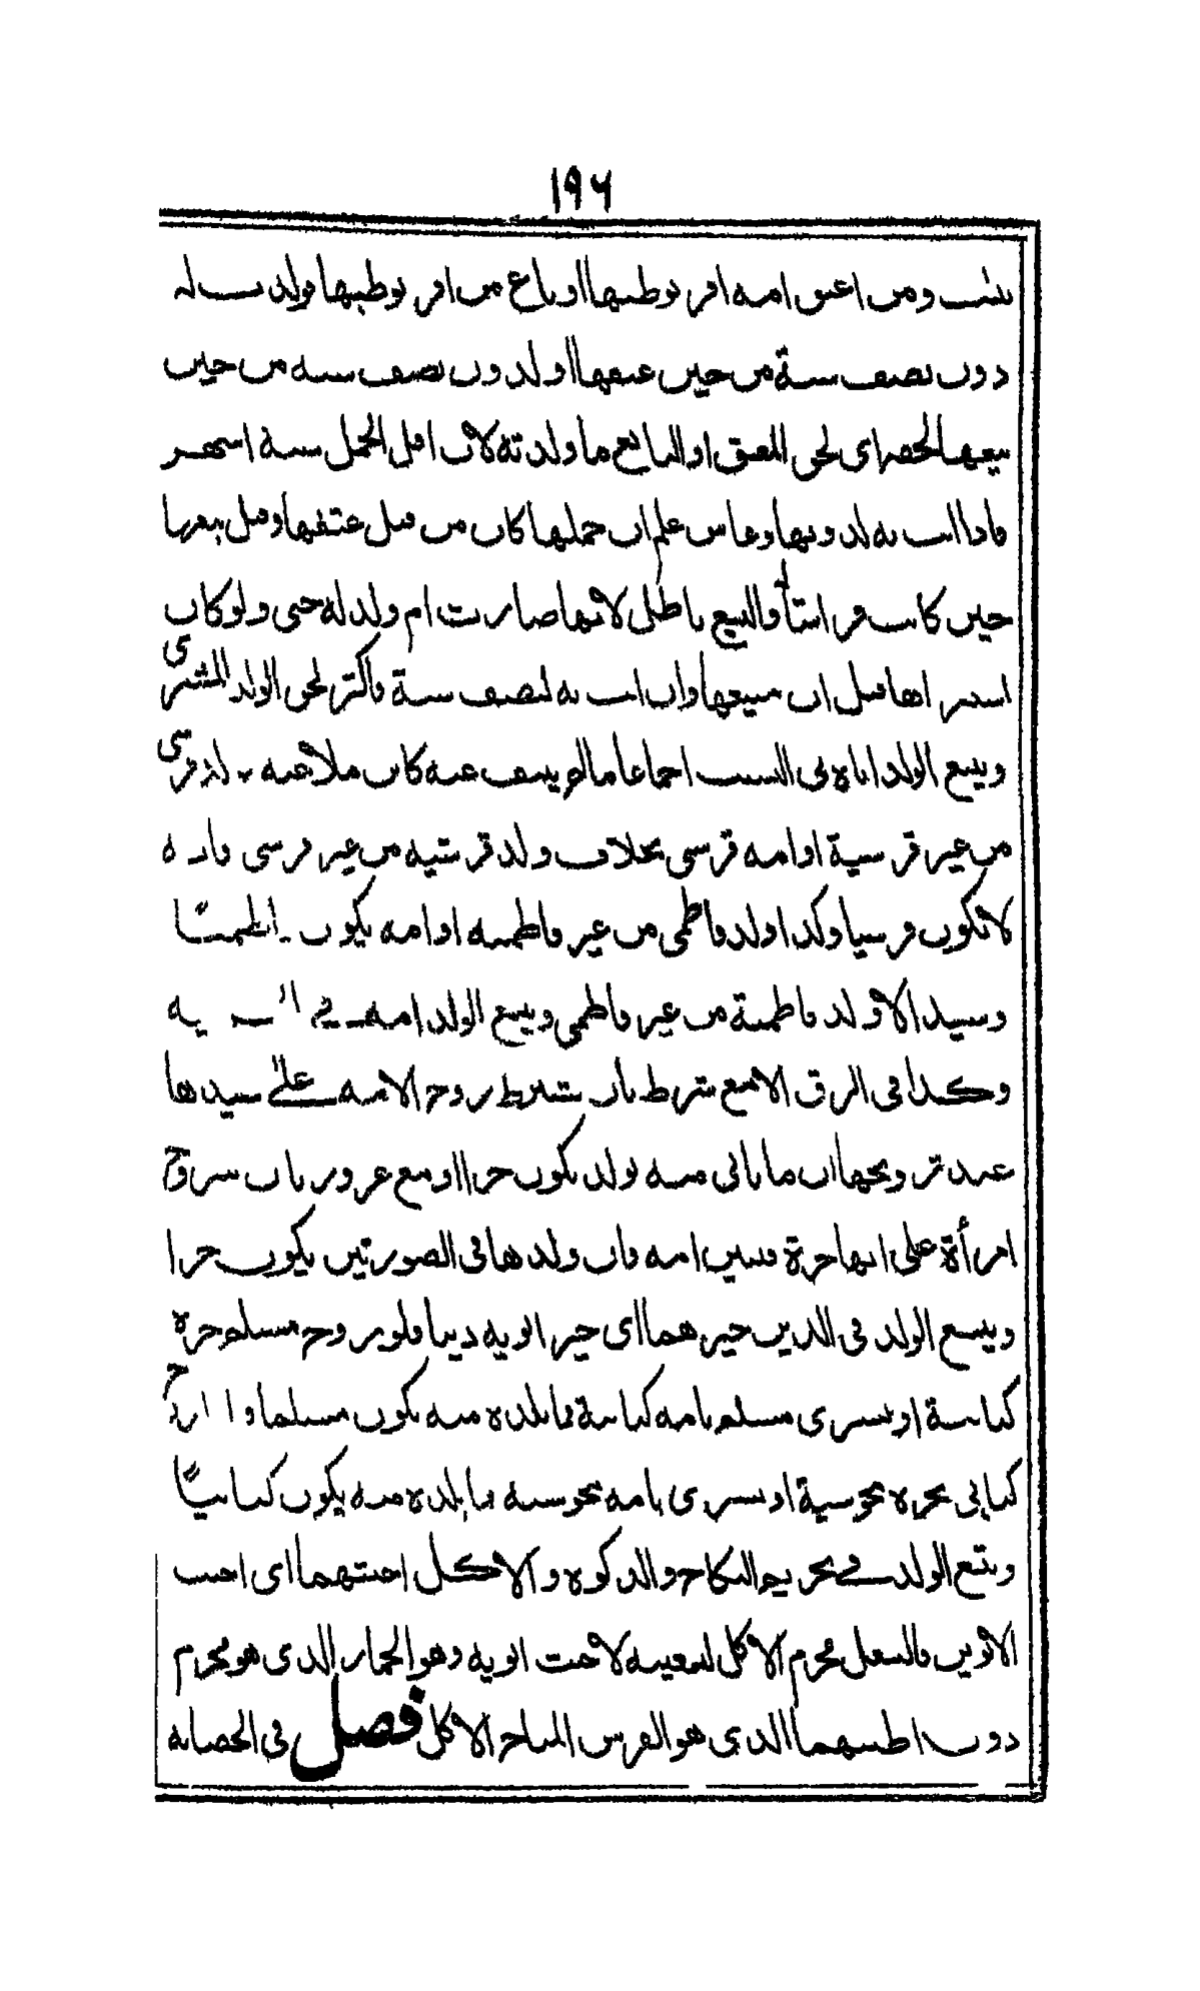 ١٩٦
يثبت ومن اعتق امة اقر بوطئها او باع من اقر بوطئها فولدت له
دون نصف سنة من حين عتقها او لدون نصف سنة من حين
بيعها لحقه اى لحق المعتق او البايع ما ولدته لان اقل الحمل ستة اشهر
فاذا اتت به لدونها وعاش علم ان حملها كان من قبل عتقها وقبل بيعها
حين كانت فراشا والبيع باطل لانها صارت ام ولد له حتى ولو كان
استبراها قبل ان يبيعها وان اتت به لنصف سنة فاكثر لحق الولد المشترى
ويتبع الولد اباه فى النسب اجماعا مالم ينتف عنه كابن ملاعنة فولد قرشى
من غير قرشية او امة قرشى بخلاف ولد قرشية من غير قرشى فانه
لا يكون قرشيا وكذا ولد فاطمى من غير فاطمية او امة يكون فاطميًا
وسيدا لا ولد فاطمية من غير فاطمى ويتبع الولد امه في الحرية
وكذا فى الرق الا مع شرط بان شرط زوج الامة على سيدها
عند تزويجها ان ما ياتى منه بولد يكون حرا او مع غرور بان تزوج
امرأة على انها حرة فتبين امة فان ولدها فى الصورتين يكون حرا
ويتبع الولد فى الدين خيرهما اى خير ابويه دينا فلو تزوج مسلم حرة
كتابية او تسرى مسلم بامة كتابية فما تلده منه يكون مسلما وان تزوج
كتابى بحرة مجوسية او تسرى بامة مجوسية فما تلده منه يكون كتابيًا
ويتبع الولد في تحريم النكاح والذكوة والاكل اخبثهما اى اخبث
الابوين فالبغل محرم الاكل لتبعيته لاخبث ابويه وهو الحمار الذى هو محرم
دون اطيبهما الذى هو الفرس المباح الاكل فصل فى الحضانة